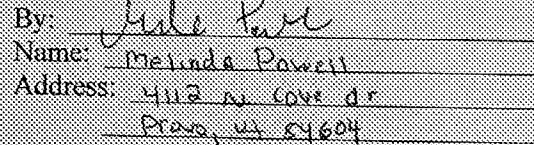 By:
Name: Melinda Powell
Address: 4112 N. Cove dr
Provo, Ut 84604